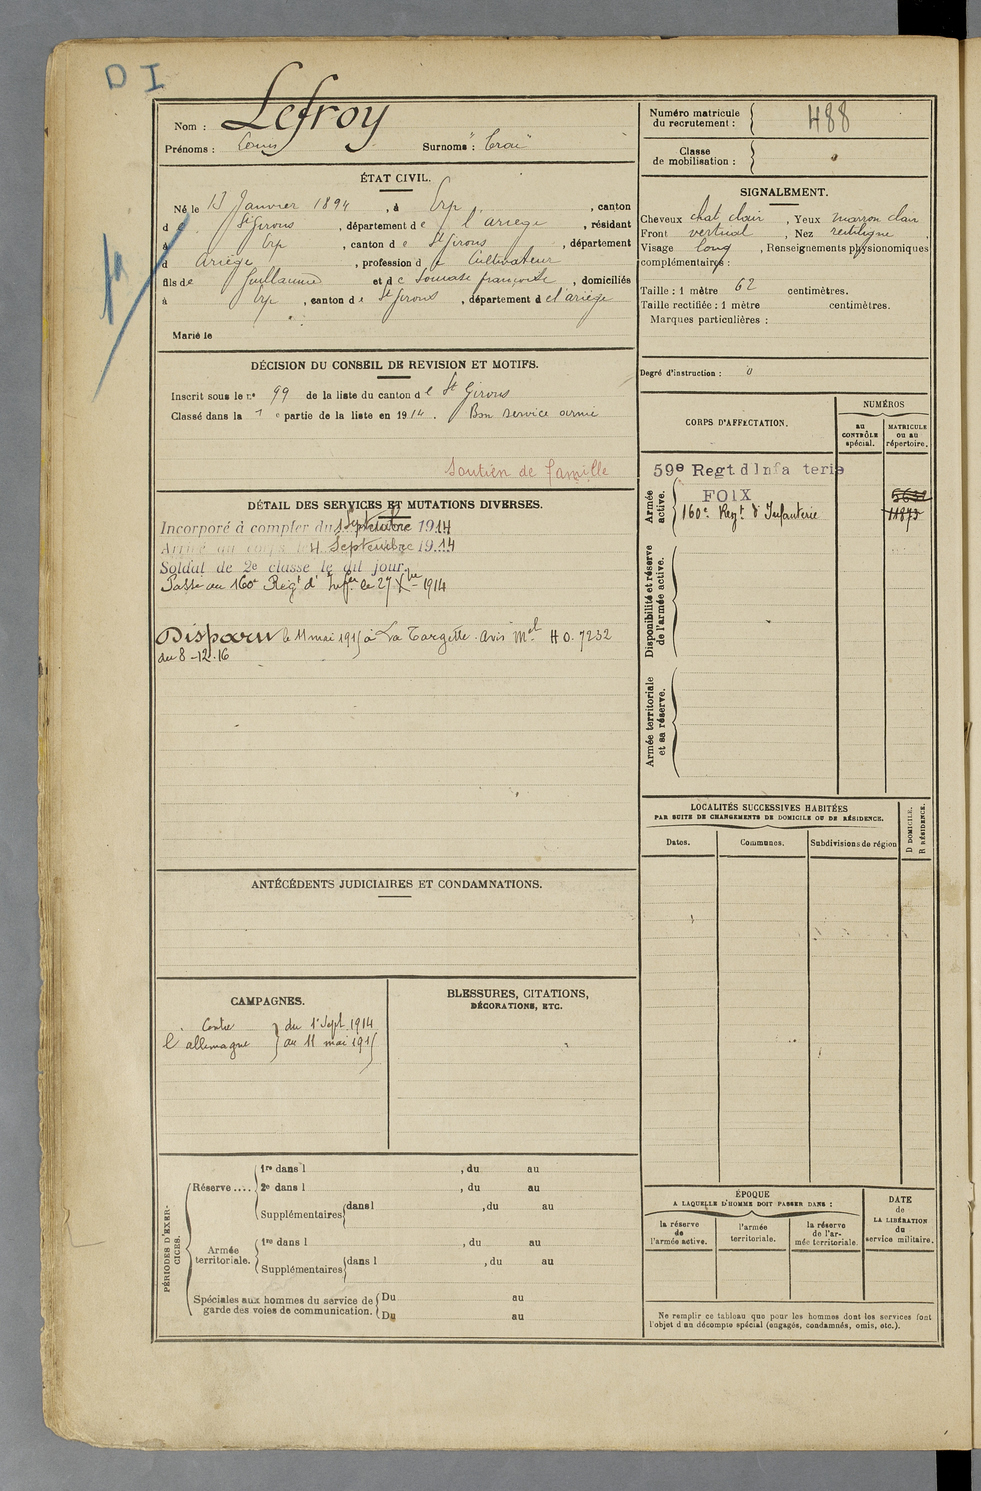 D I
Nom : Lefroy
Prénoms : Louis Surnoms : "Croü"
ÉTAT CIVIL.
Né le 13 Janvier 1894, à Erp, canton
de St Girons, département de l'ariège, résidant
à Erp, canton de St Girons, département
d ariège, profession de Cultivateur
fils de Guillaume et de Soumase françoise, domiciliés
à Erp, canton de St Girons, département de l'ariège
Marié le
DÉCISION DU CONSEIL DE REVISION ET MOTIFS.
Inscrit sous le no 99 de la liste du canton de St Girons
Classé dans la 1e partie de la liste en 1914. Bon service armé
Soutien de famille
DÉTAIL DES SERVICES ET MUTATIONS DIVERSES.
Incorporé à compter du 1 Septembre 1914
Arrivé au corps le 4 Septembre 1914
Soldat de 2e classe le dit jour.
Passé au 160e Regt d'Infrie le 27 Xbre 1914
Disparu le 11 mai 1915 à La Targette. Avis Mel HO. 7232
du 8-12.16
ANTÉCÉDENTS JUDICIAIRES ET CONDAMNATIONS.
CAMPAGNES.
Contre } du 1er Sept. 1914
l'allemagne } au 11 mai 1915
BLESSURES, CITATIONS,
DÉCORATIONS, ETC.
PÉRIODES D'EXERCICES.
Réserve.... 1re dans l , du au
2e dans l , du au
Supplémentaires dans l , du au
Armée territoriale. 1re dans l , du au
Supplémentaires dans l , du au
Spéciales aux hommes du service de Du au
garde des voies de communication. Du au
Numéro matricule
du recrutement : 488
Classe
de mobilisation :
SIGNALEMENT.
Cheveux chat clair, Yeux marron clair
Front vertical, Nez rectiligne,
Visage long, Renseignements physionomiques
complémentaires :
Taille : 1 mètre 62 centimètres.
Taille rectifiée : 1 mètre centimètres.
Marques particulières :
Degré d'instruction : 0
CORPS D'AFFECTATION.
NUMÉROS
au CONTRÔLE spécial.
MATRICULE ou au répertoire.
Armée active.
59e Regt d'Infanterie
FOIX
160e Regt d'Infanterie 11875
Disponibilité et réserve de l'armée active.
Armée territoriale et sa réserve.
LOCALITÉS SUCCESSIVES HABITÉES
PAR SUITE DE CHANGEMENTS DE DOMICILE OU DE RÉSIDENCE.
Dates. Communes. Subdivisions de région D DOMICILE. R RÉSIDENCE.
ÉPOQUE
A LAQUELLE L'HOMME DOIT PASSER DANS :
la réserve de l'armée active.
l'armée territoriale.
la réserve de l'armée territoriale.
DATE de LA LIBÉRATION du service militaire.
Ne remplir ce tableau que pour les hommes dont les services font
l'objet d'un décompte spécial (engagés, condamnés, omis, etc.).